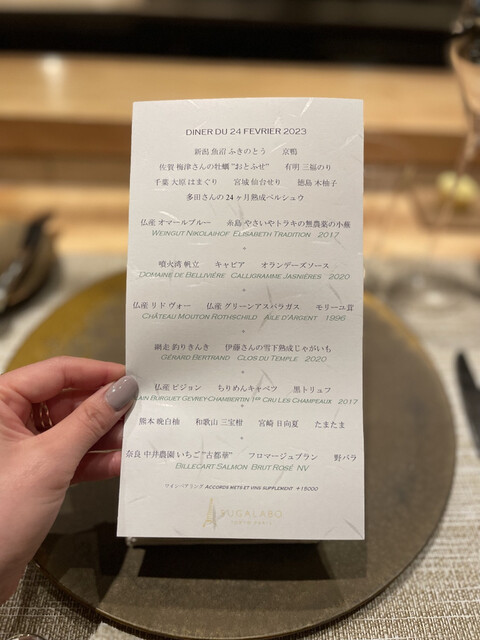 DINER DU 24 FEVRIER 2023
新潟 魚沼 ふきのとう 京鴨
佐賀 梅津さんの牡蠣 "おとふせ" 有明 三福のり
千葉 大原 はまぐり 宮城 仙台せり 徳島 木柚子
多田さんの 24 ヶ月熟成ペルシュウ
仏産 オマールブルー 糸島 やさいやトラキの無農薬の小蕪
WEINGUT NIKOLAIHOF ELISABETH TRADITION 2017
+
噴火湾 帆立 キャビア オランデーズソース
DOMAINE DE BELLIVIÈRE CALLIGRAMME JASNIÈRES 2020
+
仏産 リ ド ヴォー 仏産 グリーンアスパラガス モリーユ茸
CHÂTEAU MOUTON ROTHSCHILD AILE D'ARGENT 1996
+
網走 釣りきんき 伊藤さんの雪下熟成じゃがいも
GÉRARD BERTRAND CLOS DU TEMPLE 2020
+
仏産 ピジョン ちりめんキャベツ 黒トリュフ
LAIN BURGUET GEVREY-CHAMBERTIN 1ER CRU LES CHAMPEAUX 2017
熊本 晩白柚 和歌山 三宝柑 宮崎 日向夏 たまたま
+
奈良 中井農園 いちご "古都華" フロマージュブラン 野バラ
BILLECART SALMON BRUT ROSÉ NV
ワインペアリング ACCORDS METS ET VINS SUPPLEMENT +18000
SUGALABO